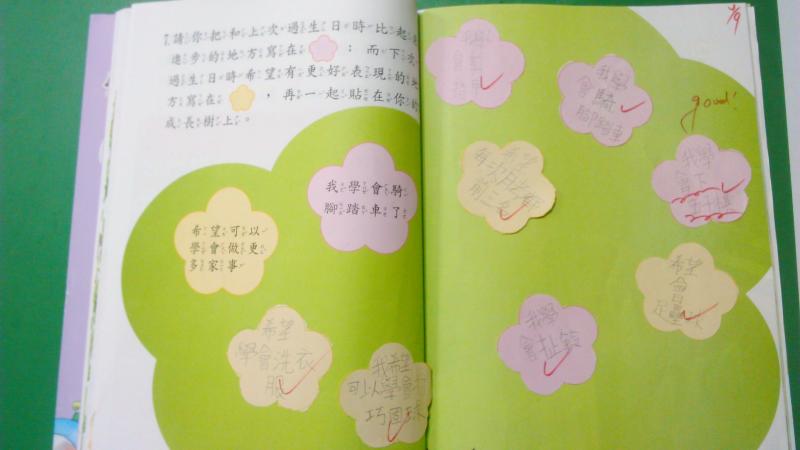 請你把和上次過生日時比起來
進步的地方寫在 ;而下次
過生日時希望有更好表現的地
方寫在 ,再一起貼在你的
成長樹上。
我學會騎
腳踏車了
希望可以
學會做更
多家事
希望
學會洗衣
服
我希望
可以學會打
巧固球
我學
會騎
腳踏車
good!
我學
會下
希望
我學
會扯鈴
希望
會
足壘球